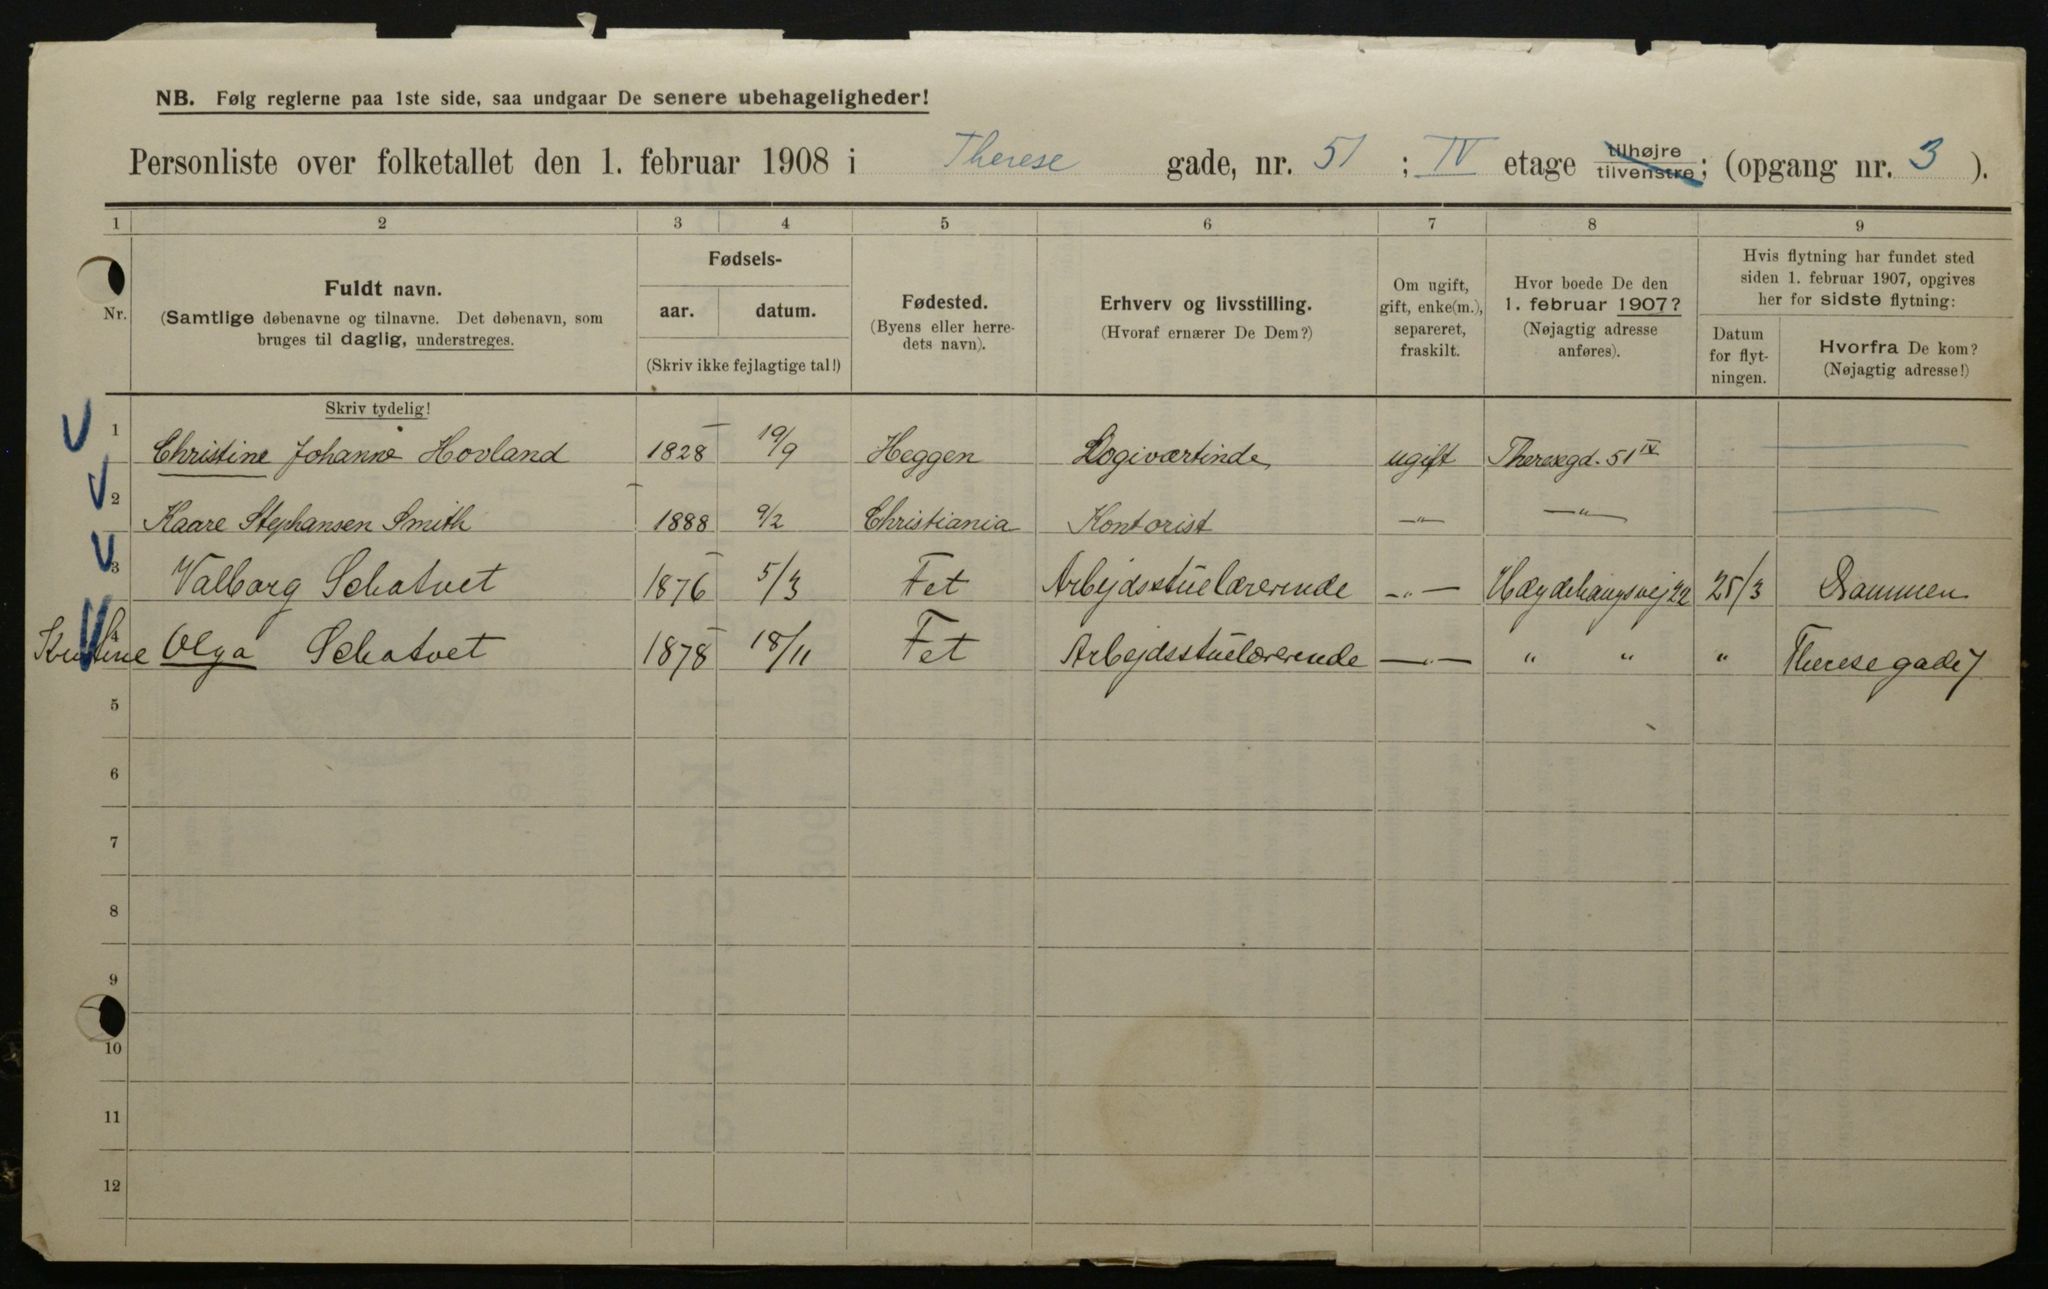 NB. Følg reglerne paa 1ste side, saa undgaar De senere ubehageligheder!
Personliste over folketallet den 1. februar 1908 i Therese gade, nr. 51 ; IV etage tilhøjre tilvenstre; (opgang nr. 3 ).
1 2 3 4 5 6 7 8 9
Nr.
Fuldt navn.
(Samtlige døbenavne og tilnavne. Det døbenavn, som
bruges til daglig, understreges.
Fødsels-
aar. datum.
(Skriv ikke fejlagtige tal!)
Fødested.
(Byens eller herre-
dets navn).
Erhverv og livsstilling.
(Hvoraf ernærer De Dem?)
Om ugift,
gift, enke(m.),
separeret,
fraskilt.
Hvor boede De den
1. februar 1907?
(Nøjagtig adresse
anføres).
Hvis flytning har fundet sted
siden 1. februar 1907, opgives
her for sidste flytning:
Datum
for flyt-
ningen.
Hvorfra De kom?
(Nøjagtig adresse!)
Skriv tydelig!
1 Christine Johanne Hovland 1828 19/9 Heggen Logiværtinde ugift Theresegd. 51 IV
2 Kaare Stephansen Smith 1888 9/2 Christiania Kontorist —"— —"—
3 Valborg Schatvet 1876 5/3 Fet Arbejdsstuelærerinde —"— 22 25/3 Drammen
4 Kristine Olga Schatvet 1878 18/11 Fet Arbejdsstuelærerinde —"— " " " Theresegade 7
5
6
7
8
9
10
11
12